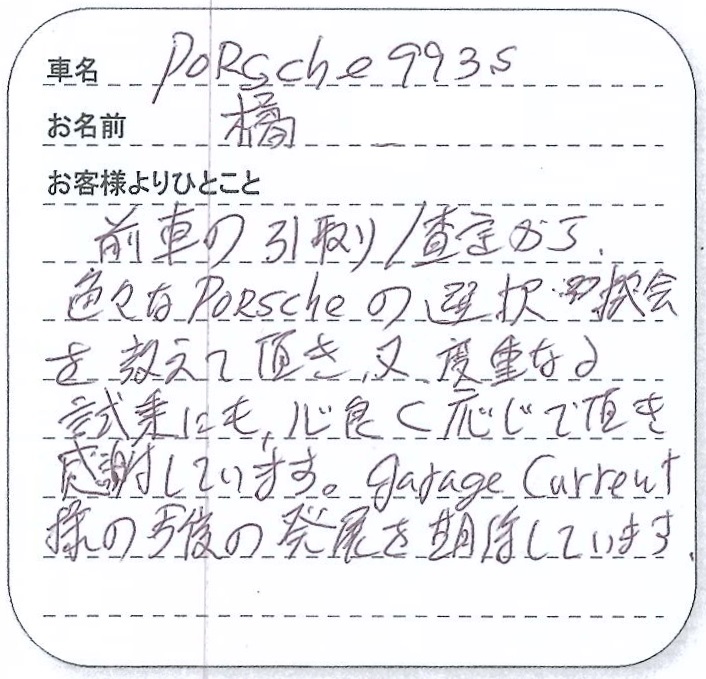 車名 PORSche 993S
お名前 橘
お客様よりひとこと
前車の引取り/査定から、
色々なPORscheの選択 機会
を教えて頂き、又、度重なる
試乗にも、心良く応じて頂き
感謝しています。garage Current
様の今後の発展を期待しています.